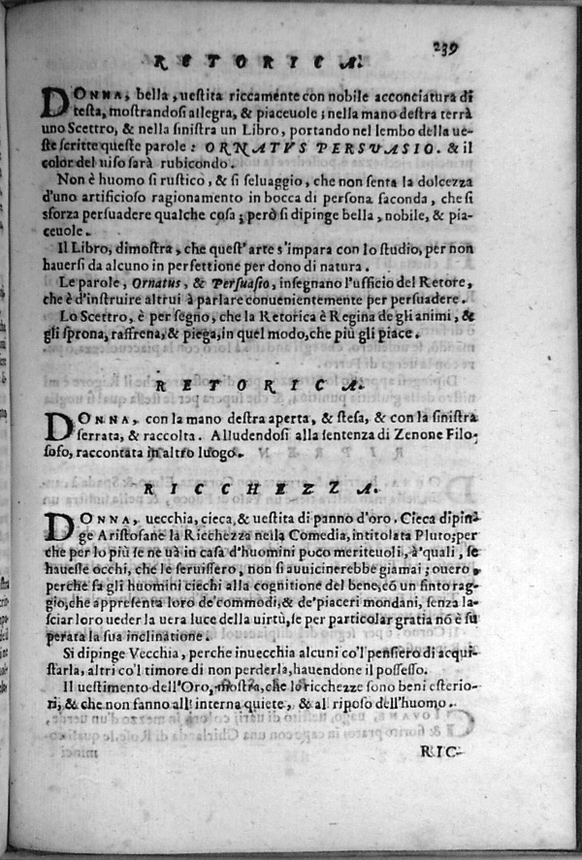 239
RETORICA.
DONNA, bella, uestita riccamente con nobile acconciatura di
testa, mostrandosi allegra, & piaceuole; nella mano destra terrà
uno Scettro, & nella sinistra un Libro, portando nel lembo della ue-
ste scritte queste parole: ORNATVS PERSVASIO. & il
color del uiso sarà rubicondo.
Non è huomo sì rustico, & sì seluaggio, che non senta la dolcezza
d'uno artificioso ragionamento in bocca di persona faconda, che si
sforza persuadere qualche cosa; però si dipinge bella, nobile, & pia-
ceuole.
Il Libro, dimostra, che quest'arte s'impara con lo studio, per non
hauersi da alcuno in perfettione per dono di natura.
Le parole, Ornatus, & Persuasio, insegnano l'ufficio del Retore,
che è d'instruire altrui à parlare conuenientemente per persuadere.
Lo Scettro, è per segno, che la Retorica è Regina de gli animi, &
gli sprona, raffrena, & piega, in quel modo, che più gli piace.
RETORICA.
DONNA, con la mano destra aperta, & stesa, & con la sinistra
serrata, & raccolta. Alludendosi alla sentenza di Zenone Filo-
sofo, raccontata in altro luogo.
RICCHEZZA.
DONNA, uecchia, cieca, & uestita di panno d'oro. Cieca dipin-
ge Aristofane la Ricchezza nella Comedia, intitolata Pluto; per
che per lo più se ne uà in casa d'huomini puco meriteuoli, à'quali, se
hauesse occhi, che le seruissero, non si auuicinerebbe giamai; ouero,
perche fa gli huomini ciechi alla cognitione del bene, cō un finto rag-
gio, che appresenta loro de'commodi, & de'piaceri mondani, senza la-
sciar loro ueder la uera luce della uirtù, se per particolar gratia nō è su
perata la sua inclinatione.
Si dipinge Vecchia, perche inuecchia alcuni co'l pensiero di acqui-
starla, altri co'l timore di non perderla, hauendone il possesso.
Il uestimento dell'Oro, mostra, che le ricchezze sono beni esterio-
ri, & che non fanno all' interna quiete, & al riposo dell'huomo.
RIC-